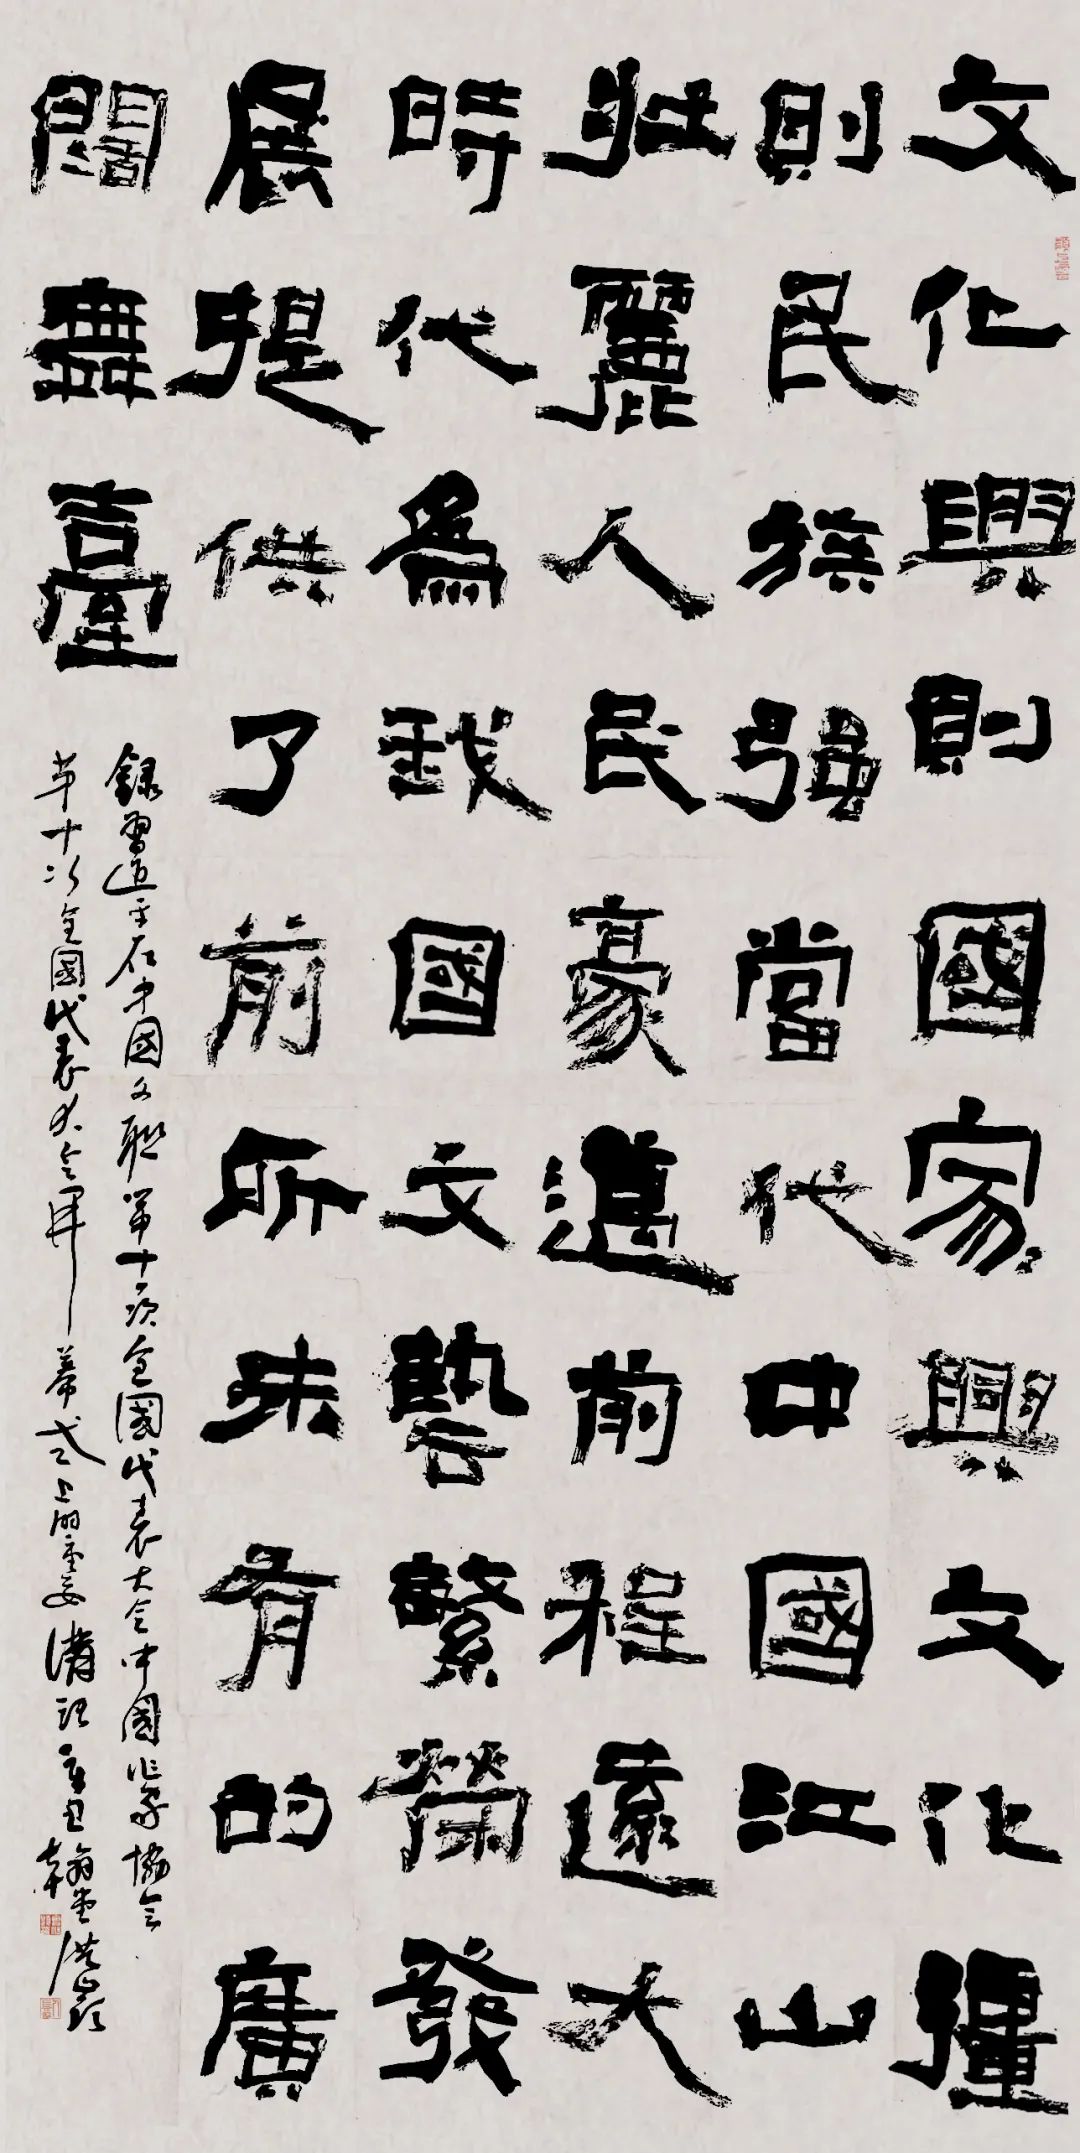 文化興則國家興文化彊
則民族強當代中國江山
壯麗人民豪邁前程遠大
時代為我國文藝繁榮發
展提供了前所未有的廣
闊舞臺
錄習近平在中國文聯第十一次全國代表大會中國作家協會
第十次全國代表大會開幕式上的重要講話辛丑